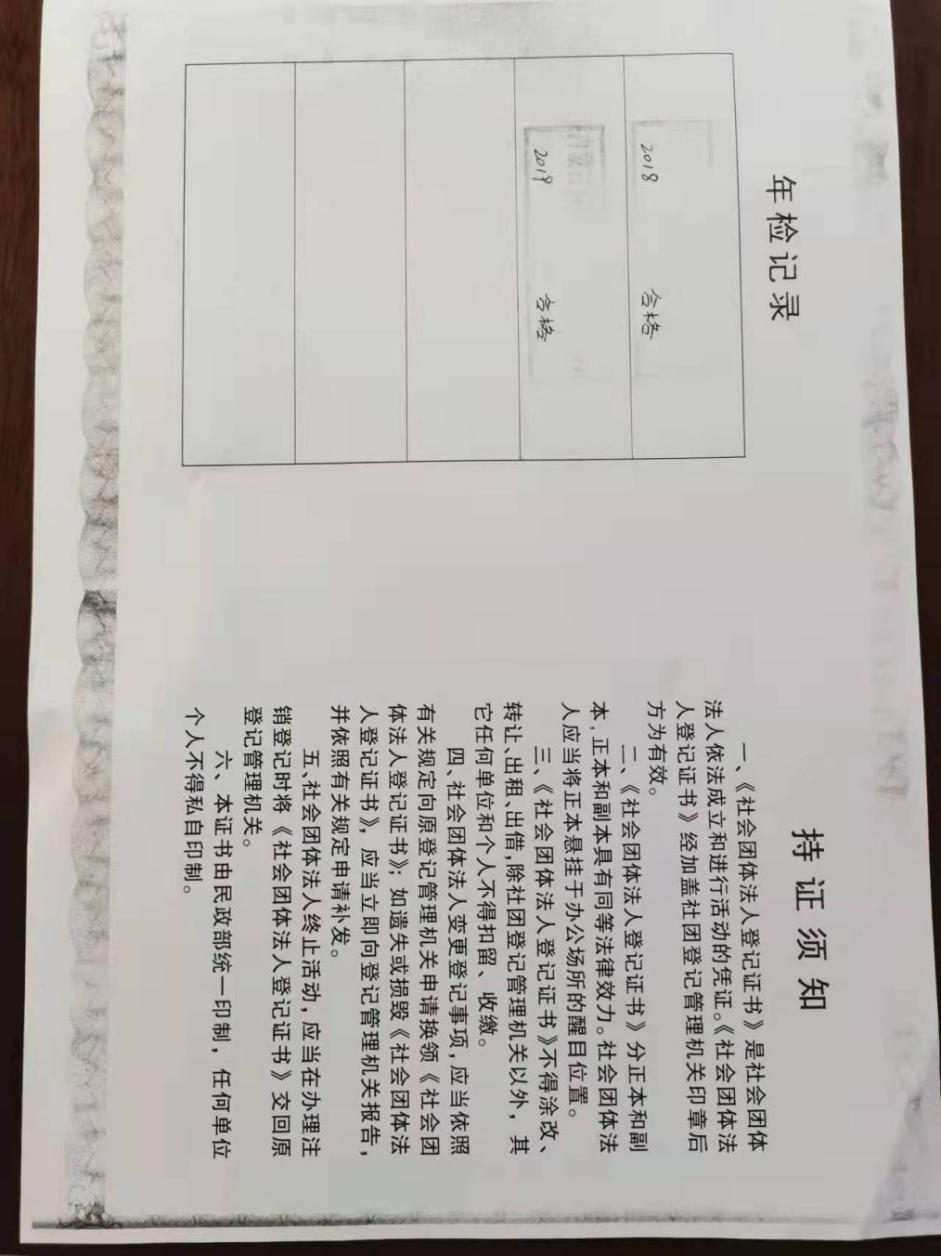 年检记录
2018 合格
2019 合格
持证须知
一、《社会团体法人登记证书》是社会团体
法人依法成立和进行活动的凭证。《社会团体法
人登记证书》经加盖社团登记管理机关印章后
方为有效。
二、《社会团体法人登记证书》分正本和副
本,正本和副本具有同等法律效力。社会团体法
人应当将正本悬挂于办公场所的醒目位置。
三、《社会团体法人登记证书》不得涂改、
转让、出租、出借,除社团登记管理机关以外，其
它任何单位和个人不得扣留、收缴。
四、社会团体法人变更登记事项,应当依照
有关规定向原登记管理机关申请换领《社会团
体法人登记证书》;如遗失或损毁《社会团体法
人登记证书》，应当立即向登记管理机关报告，
并依照有关规定申请补发。
五、社会团体法人终止活动，应当在办理注
销登记时将《社会团体法人登记证书》交回原
登记管理机关。
六、本证书由民政部统一印制，任何单位
个人不得私自印制。